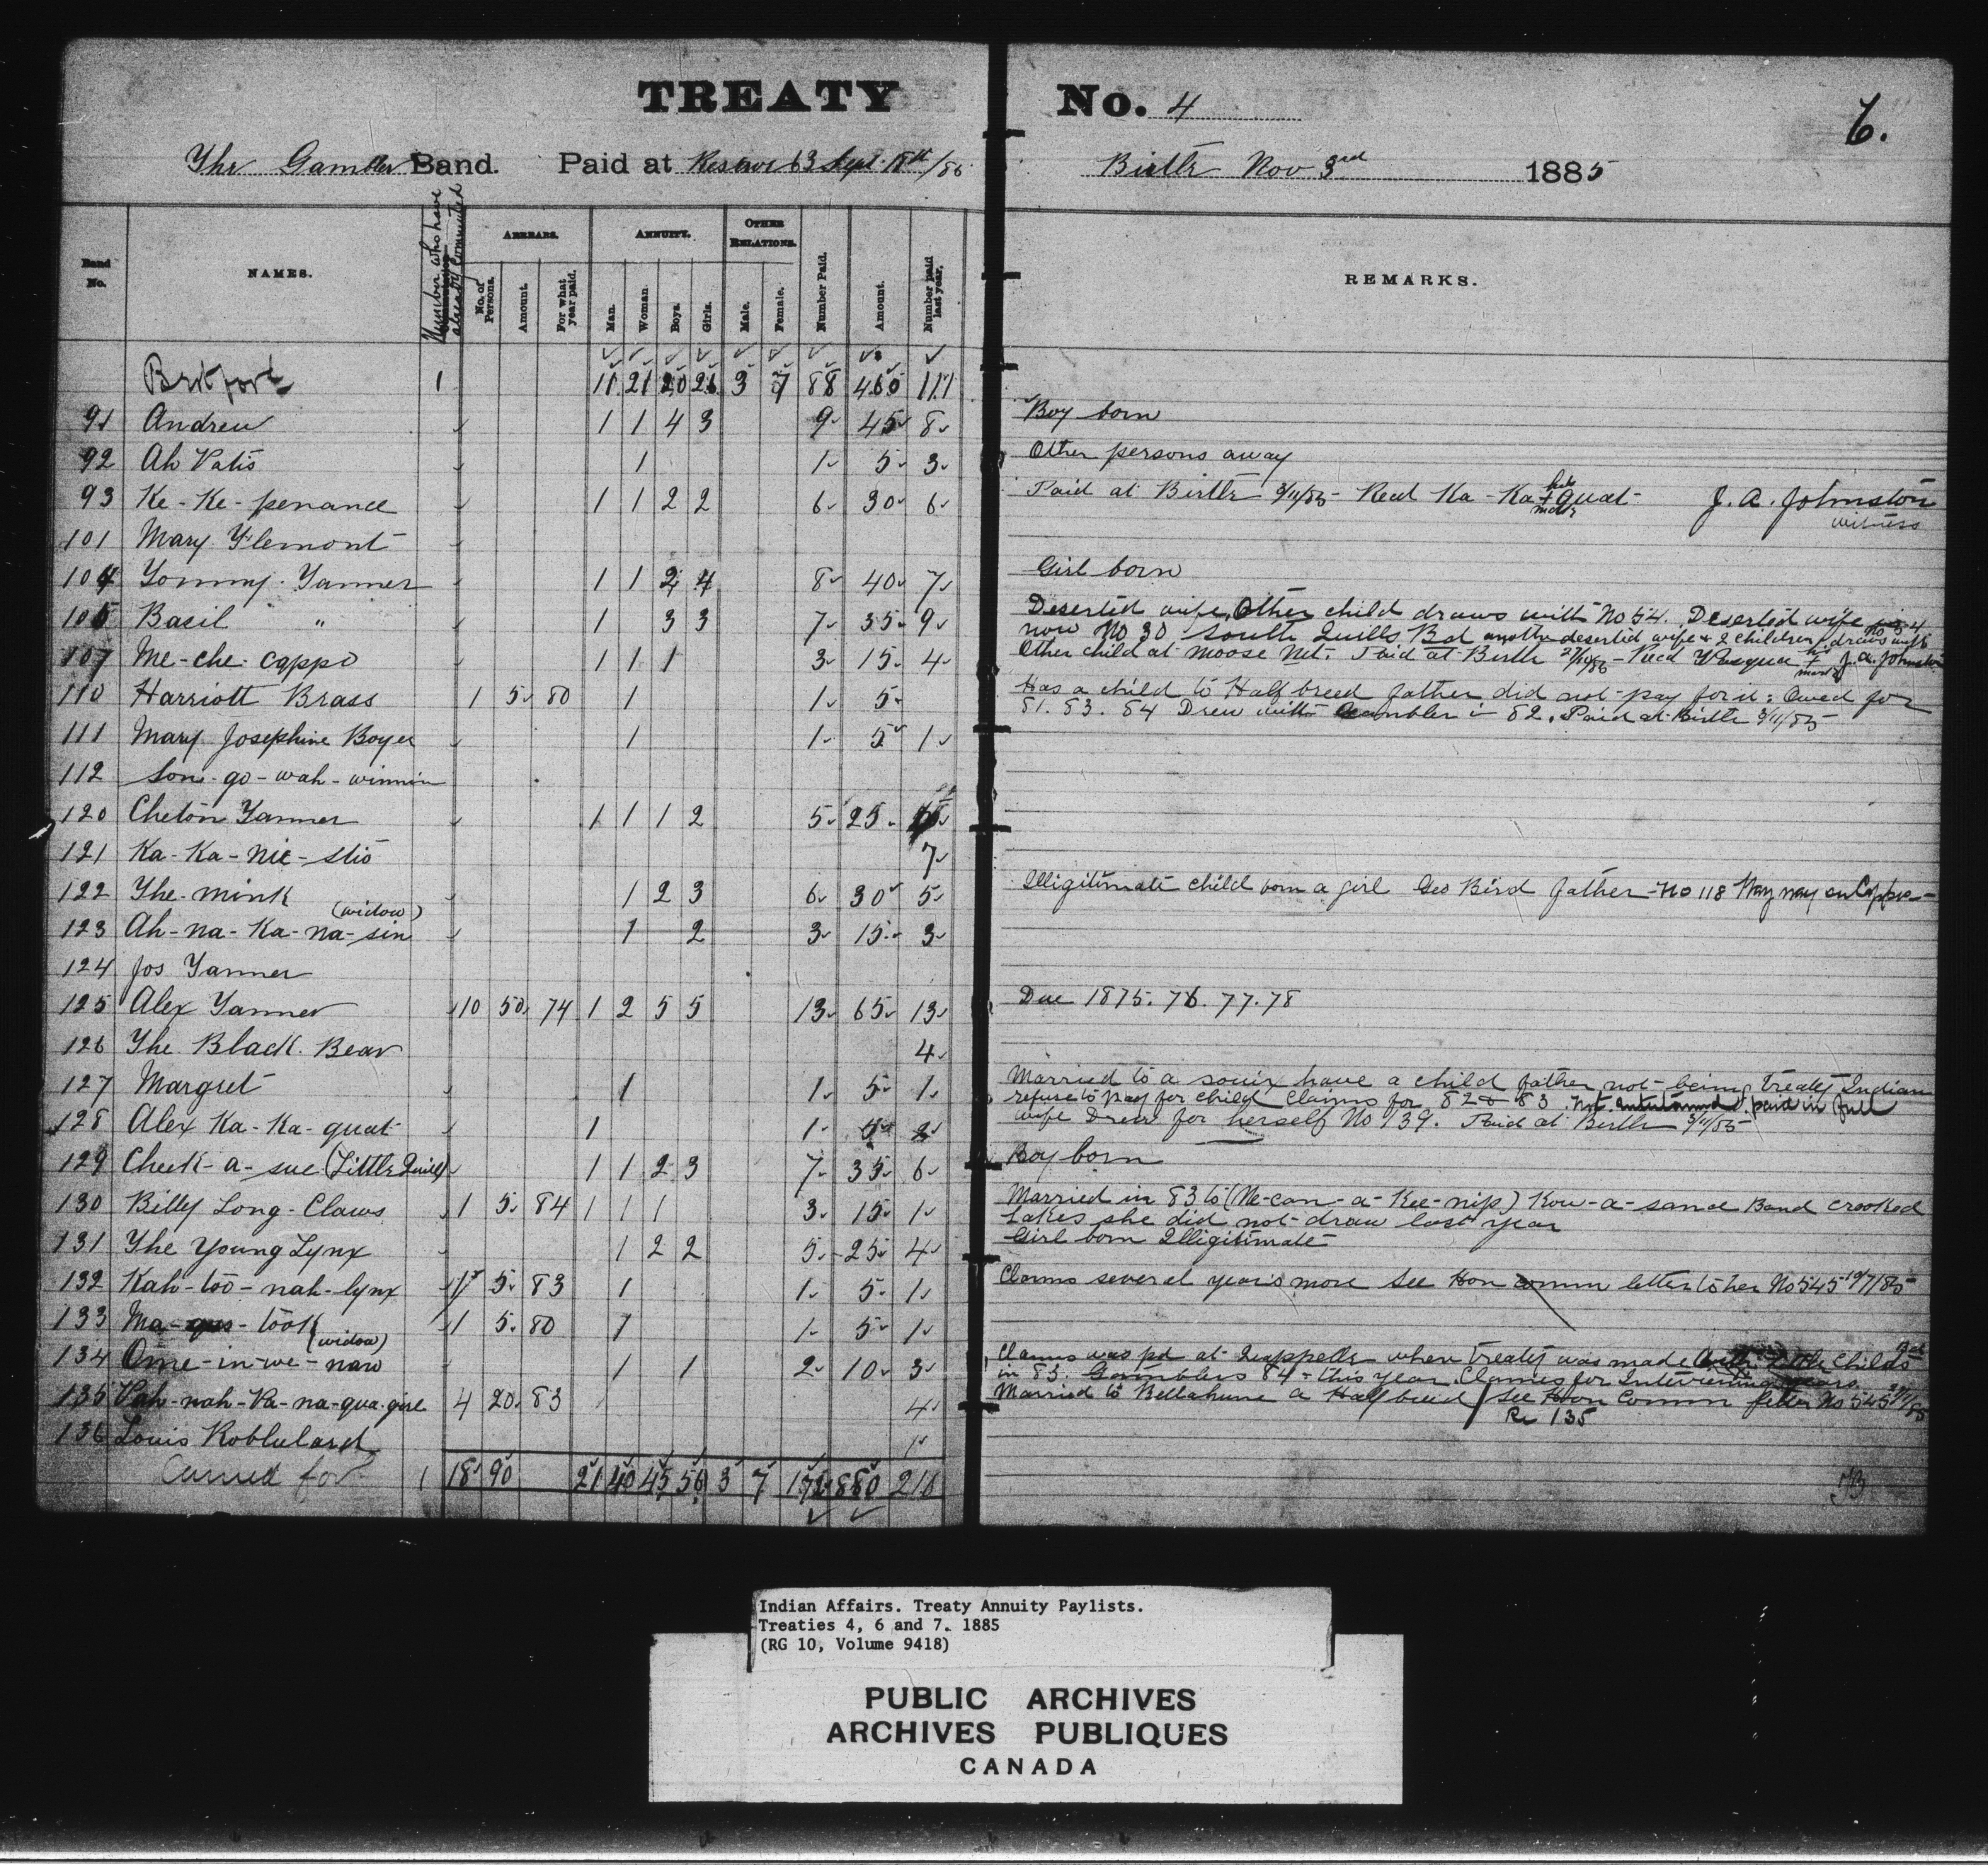 TREATY No. 4
6.
The Gambler Band. Paid at Reserve 63 Sept 18th/85 Birtle Nov 3rd 1885
Band No. NAMES. Number who have already Commuted ARREARS. ANNUITY. OTHER RELATIONS. Number Paid. Amount. Number paid last year. REMARKS.
No. of Persons. Amount. For what year paid. Man. Woman. Boys. Girls. Male. Female.
Brot ford 1 11 21 20 26 3 7 88 460 111
91 Andrew 1 1 4 3 9 45 8 Boy born
92 Ah Patis 1 1 5 3 Other persons away
93 Ke-Ke-penance 1 1 2 2 6 30 6 Paid at Birtle 3/11/85 - Recd Ka-Ka-quat his + mark J. A. Johnston witness
101 Mary Flemont
104 Tommy Tanner 1 1 2 4 8 40 7 Girl born
105 Basil " 1 3 3 7 35 9 Deserted wife, Other child draws with No 54. Deserted wife
now No 30 South Quills Bd another deserted wife & 2 children draws with
107 Me-che-cappo 1 1 1 3 15 4 Other child at Moose Mt. Paid at Birtle 27/10/85 - Recd his + mark J. A. Johnston
110 Harriott Brass 1 5 80 1 1 5 Has a child to Halfbreed father did not pay for it: Owed for
81. 83. 84 Drew with Gambler in 82. Paid at Birtle 3/11/85
111 Mary Josephine Boyer 1 1 5 1
112 Son-go-wah-winnin
120 Cheton Tanner 1 1 1 2 5 25
121 Ka-Ka-nie-stio 7
122 The mink 1 2 3 6 30 5 Illigitimate child born a girl Geo Bird father - No 118 Way way en Cappo
123 Ah-na-Ka-na-sin (widow) 1 2 3 15 3
124 Jos Tanner
125 Alex Tanner 10 50 74 1 2 5 5 13 65 13 Due 1875. 76. 77. 78
126 The Black Bear 4
127 Margret 1 1 5 1 Married to a souix have a child father not being Treaty Indian
refuse to pay for child Claims for 82 & 83. Not entertained. paid in full
128 Alex Ka-Ka-quat 1 1 5 2 wife Drew for herself No 139. Paid at Birtle 3/11/85
129 Cheek-a-sue (Little Quill) 1 1 2 3 7 35 6 Boy born
130 Billy Long-Claws 1 5 84 1 1 1 3 15 1 Married in 83 to (Ne-can-a-Kee-nip) Kow-a-sance Band Crooked
Lakes she did not draw last year
131 The Young Lynx 1 2 2 5 25 4 Girl born Illigitimate
132 Kah-too-nah-lynx 1 5 83 1 1 5 1 Claims several years more See Hon Comm letter to her No 545 10/7/85
133 Ma- -took 1 5 80 1 1 5 1
134 Ome-in-we-naw (widow) 1 1 2 10 3 Claims was pd at Quappelle when Treaty was made Little Childs
in 83. Gamblers 84 - this year. Claims for Intervening years
135 Pah-nah-Ka-na-qua-gise 4 20 83 4 Married to Bellahume a Halfbreed / See Hon Comm letter No 545
Re 135
136 Louis Roblulard 1
Carried for 1 18 90 21 40 45 56 3 7 172 880 210
Indian Affairs. Treaty Annuity Paylists.
Treaties 4, 6 and 7. 1885
(RG 10, Volume 9418)
PUBLIC ARCHIVES
ARCHIVES PUBLIQUES
CANADA